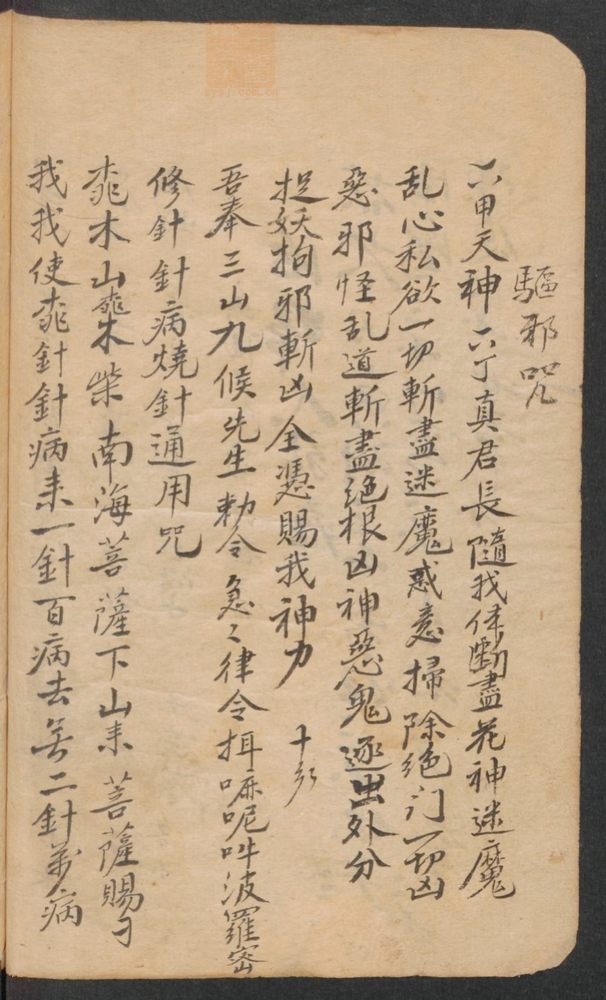 驅邪咒
六甲天神六丁真君長隨我体斷盡花神迷魔
乱心私欲一切斬盡迷魔惑意掃除絕门一切凶
惡邪怪乱道斬盡絕根凶神惡鬼逐出外分
捉妖拘邪斬凶全憑賜我神力
吾奉三山九候先生勅令急々律令挕嘛呢吽波羅密
修針針病燒針通用咒
桃木山桃木柴南海菩薩下山来菩薩賜
我我使桃針針病来一針百病去無二針萬病